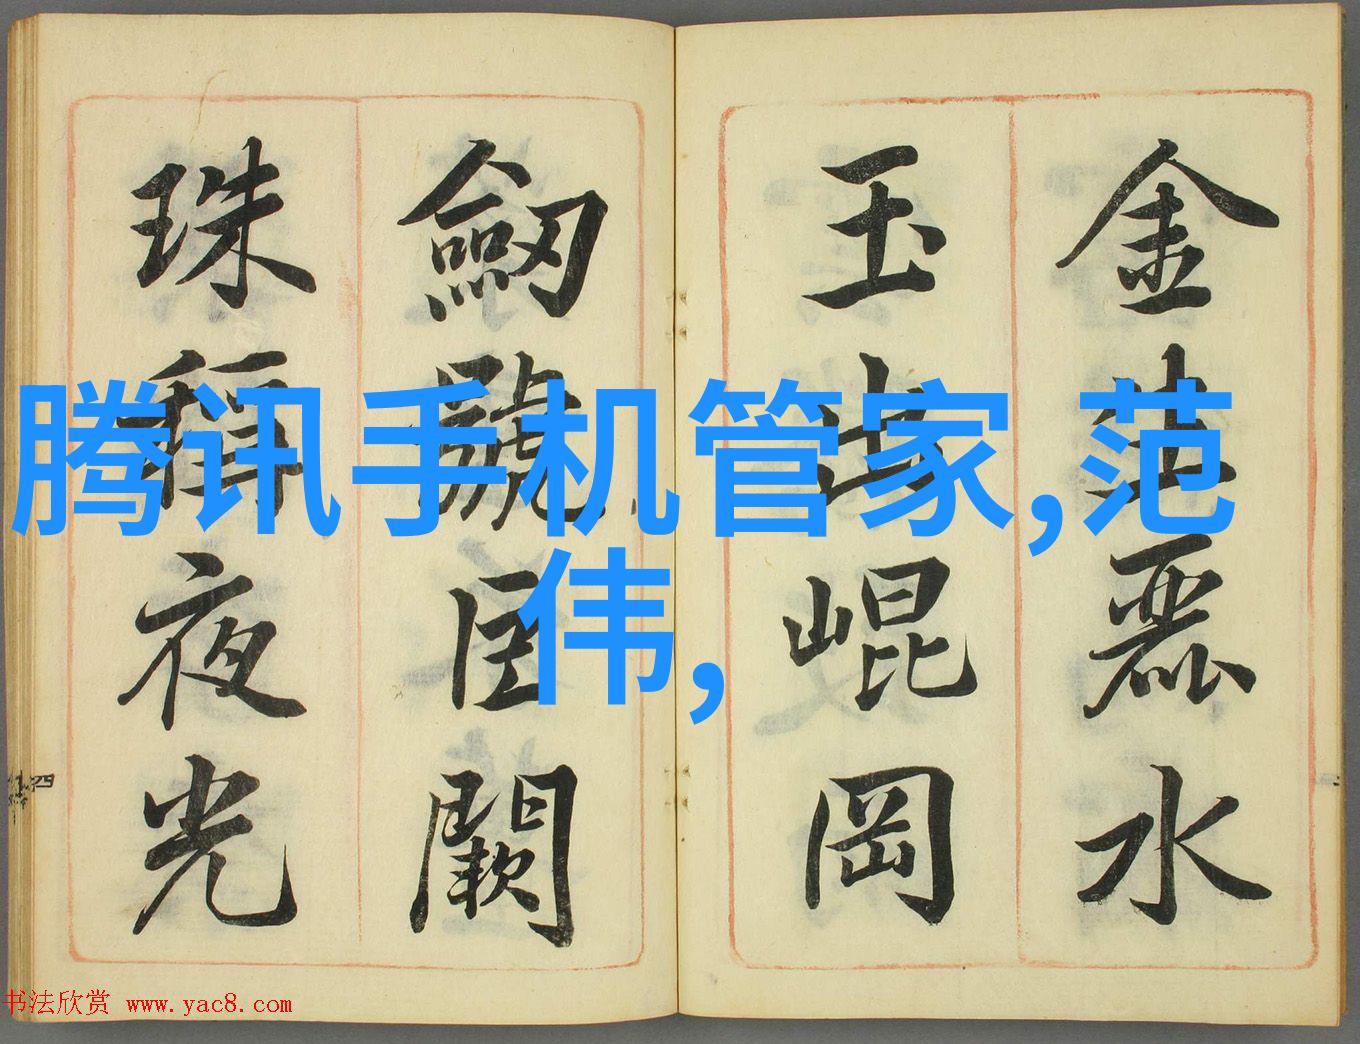 金生麗水
玉出崐岡
劒號巨闕
珠稱夜光
腾讯手机管家,范
伟,
四
书法欣赏 www.yac8.com